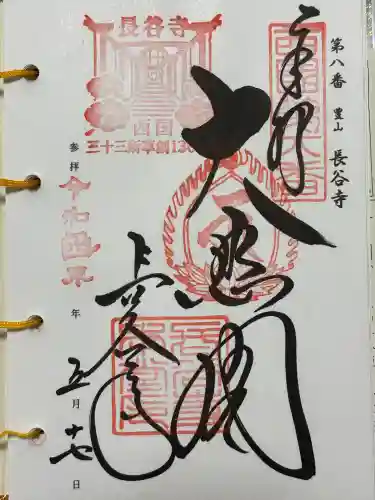 第八番 豊山 長谷寺
奉拝
大悲閣
長谷寺
長谷寺
西国
三十三所草創13
参拝 令和四年 年 五 月 十七 日